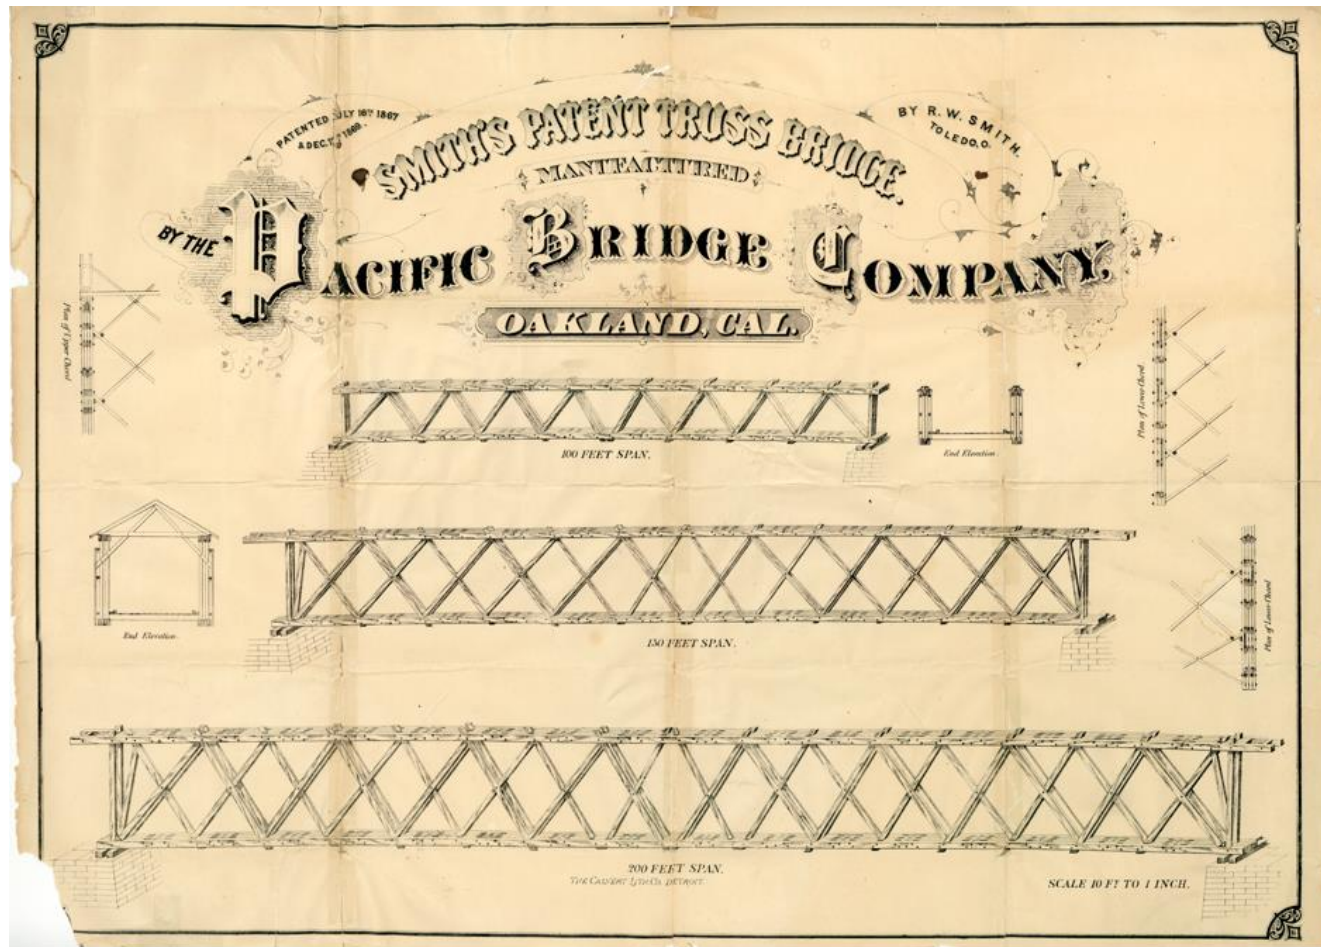 PATENTED JULY 16TH 1867
& DEC.
1869.
SMITH'S PATENT TRUSS BRIDGE.
BY R. W. SMITH.
TOLEDO, O.
MANUFACTURED
BY THE
PACIFIC BRIDGE COMPANY,
OAKLAND, CAL.
Plan of Upper Chord
Plan of Lower Chord
100 FEET SPAN.
End Elevation.
End Elevation.
150 FEET SPAN.
Plan of Lower Chord
200 FEET SPAN.
THE CALVERT LITH. CO. DETROIT.
SCALE 10 FT TO 1 INCH.